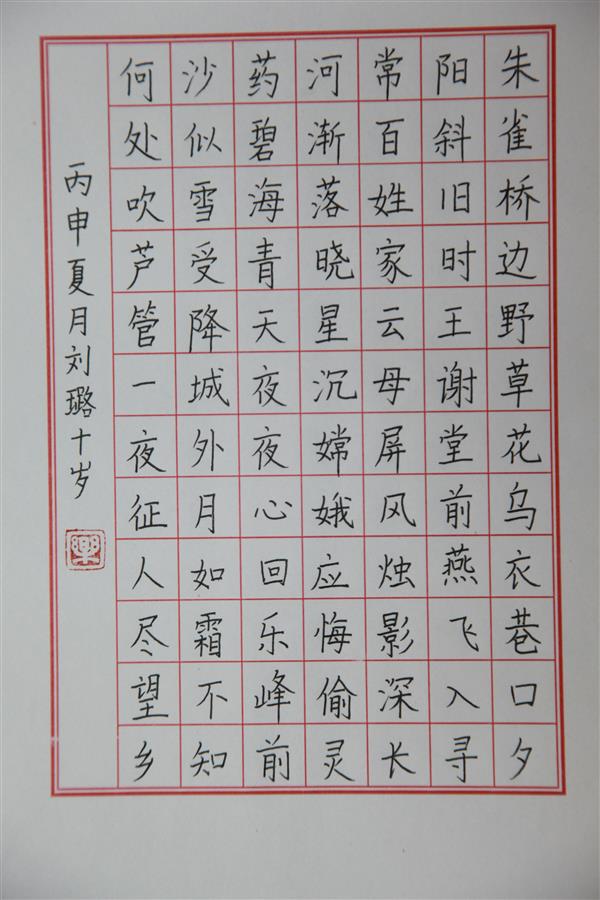 朱雀桥边野草花乌衣巷口夕
阳斜旧时王谢堂前燕飞入寻
常百姓家云母屏风烛影深长
河渐落晓星沉嫦娥应悔偷灵
药碧海青天夜夜心回乐峰前
沙似雪受降城外月如霜不知
何处吹芦管一夜征人尽望乡
丙申夏月刘璐十岁